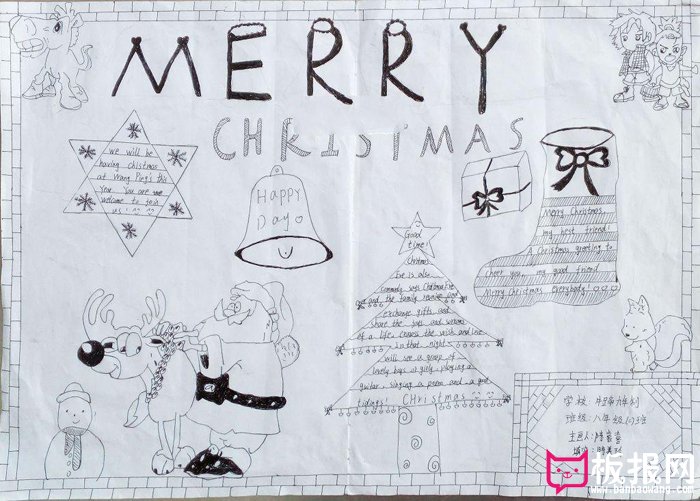 MERRY
CHRISTMAS
we will be
having christmas
at Wang Ping's this
Year. You are
welcome to join
us!
Happy
Day
Good
time!
Christmas
Eve is also
commonly says Christmas Eve
and the family reunion and
exchange gifts, and
share the joys and
of a life, convey the wish and love
in that night,
will see a group of
lovely boys or girls, playing a
guitar, singing a poem and a good
tidings! CHristmas
Merry Christmas
my best friend
A Christmas greeting to
cheer you, my good friend
Merry Christmas everybody!
学校:
班级:八年级
主办人:
板报网
www.banbaowang.com